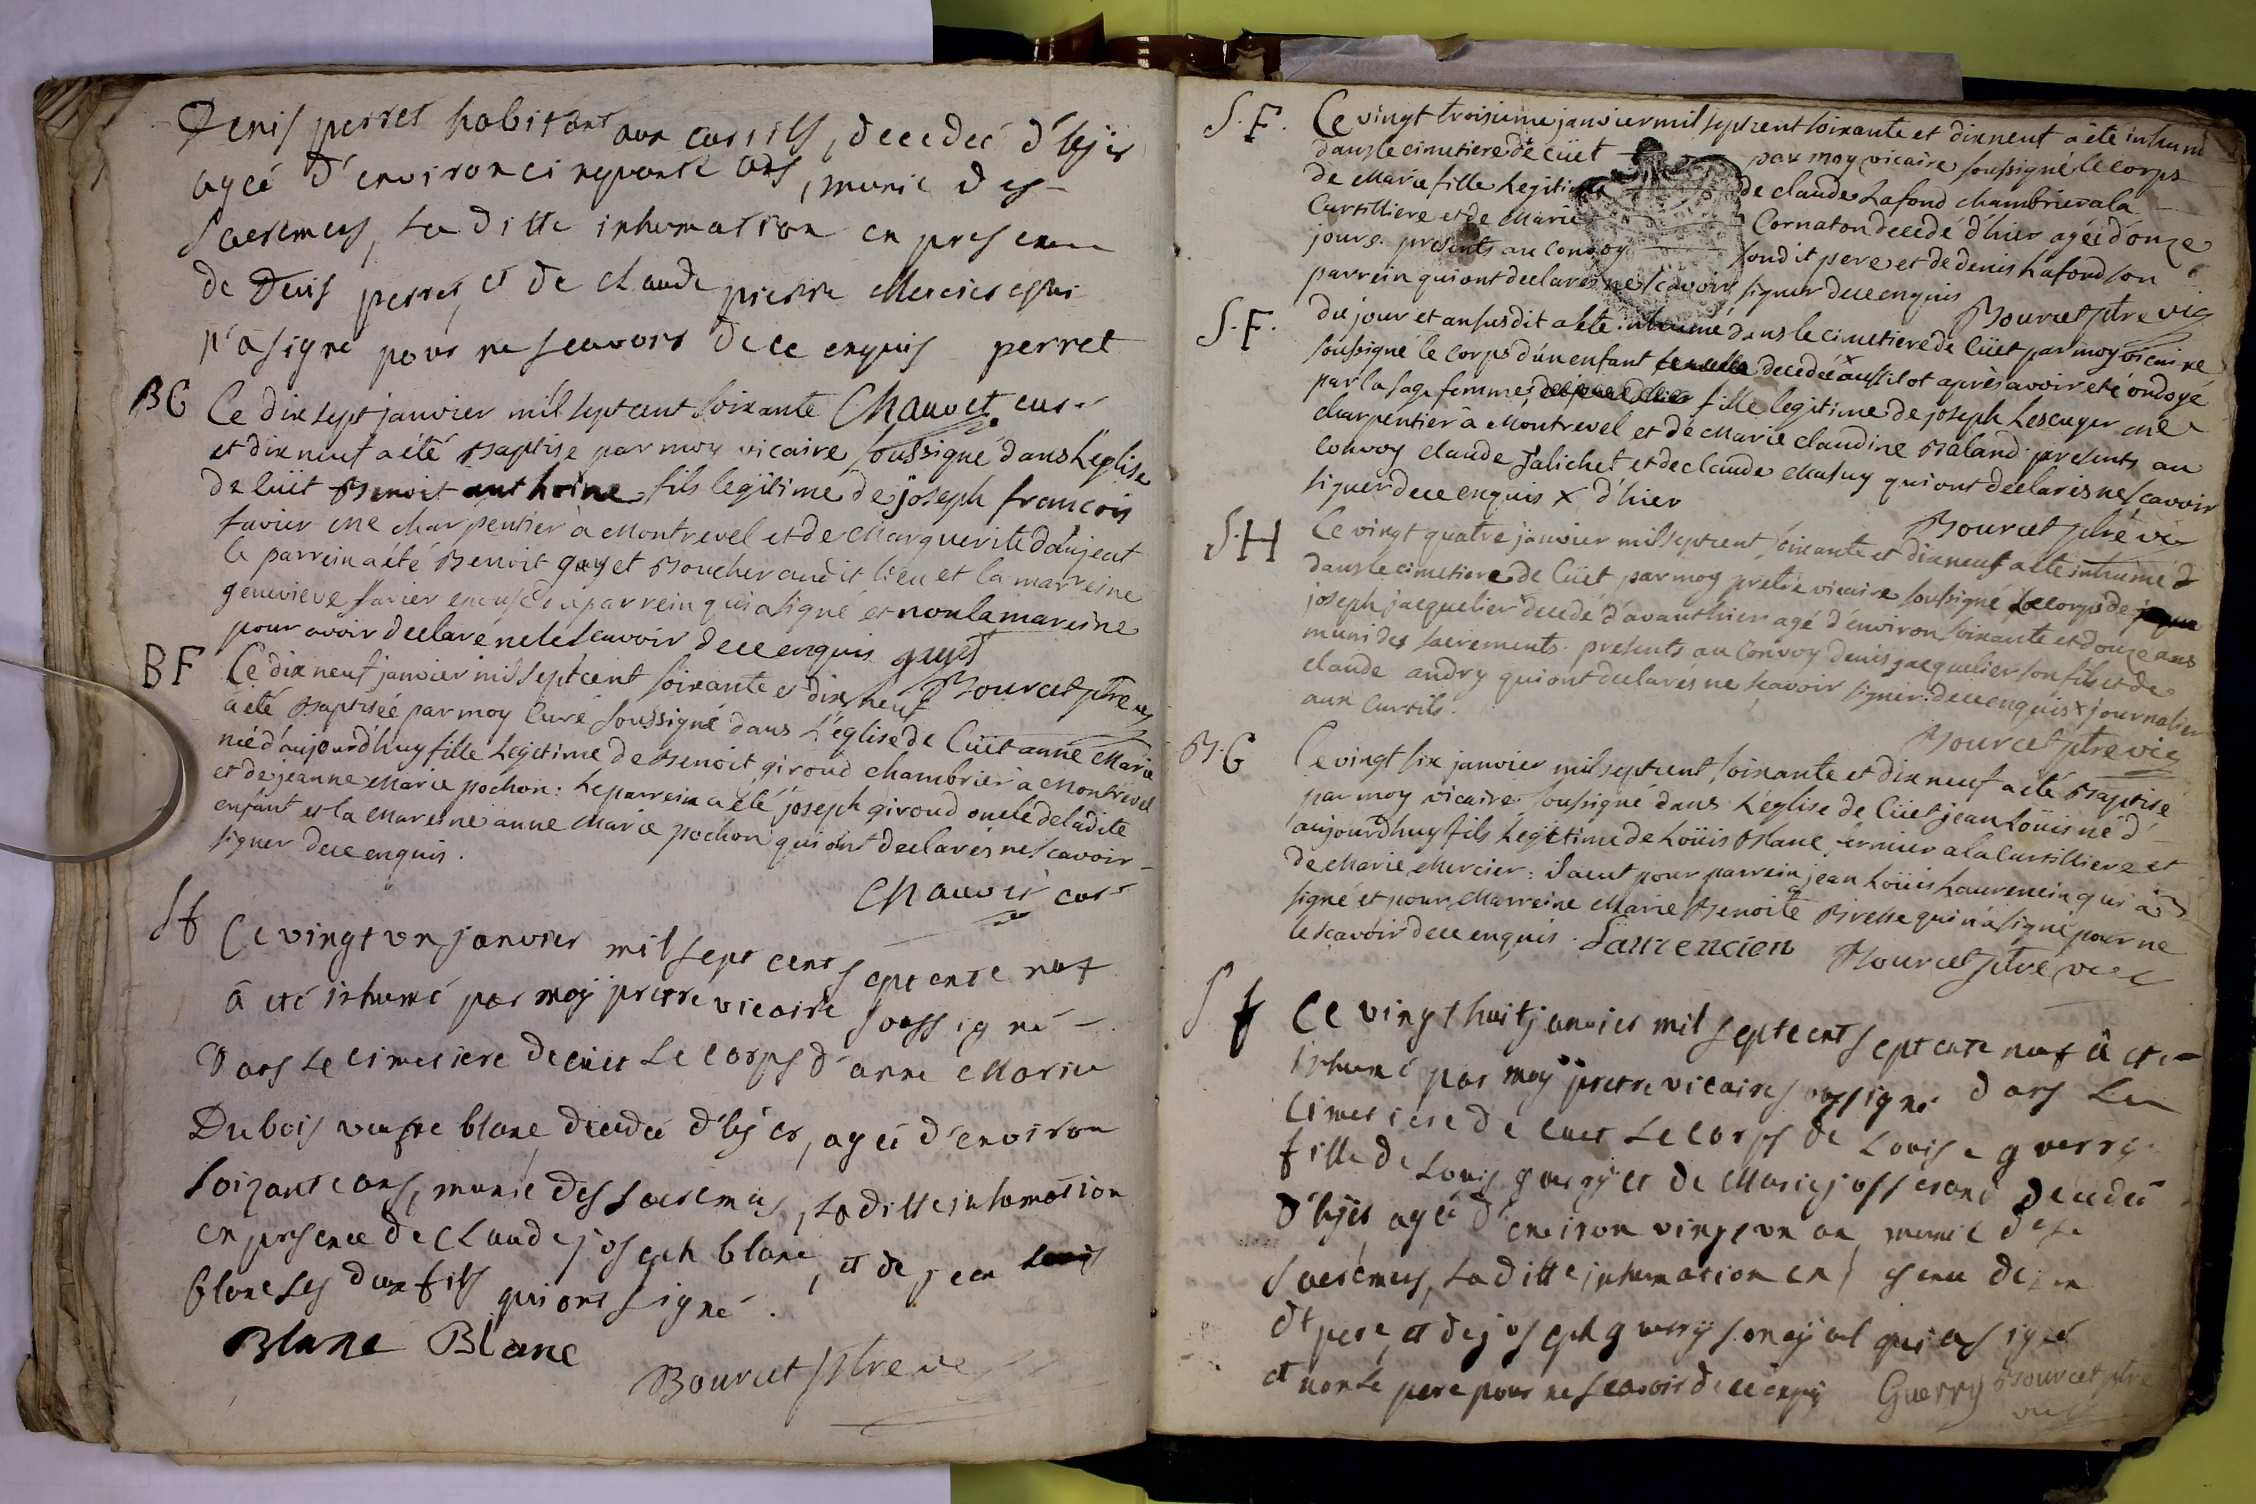 Denis perret habitant aux curtils, decedeé d'hyer
ageé d'environ cinquante ans, munie des
sacremens, La ditte inhumation en presence
de Denis perret, et de claude pierre Mercier qui
n'a signé pour ne scavoir de ce enquis perret
Chauvet curé
BG Ce dix sept janvier mil sept cent soixante
et dix neuf a été Baptise par moy vicaire soussigné dans L'eglise
de cüet Benoit anthoine fils legitime de joseph francois
favier me charpentier à Montrevel et de Marguerite daujeat
le parrein a eté Benoit guyet Boucher audit lieu et la marreine
genevieve favier du parrein qui a signé et non la mareine
pour avoir declaré ne le scavoir de ce enquis guyet
Bourcet ptre vic
BF Ce dix neuf janvier mil sept cent soixante et dix neuf
a été Baptiseé par moy Curé soussigné dans L'église de Cüet anne Marie
neé d'aujourd'huy fille Legitime de Benoit giroud chambrier à Montrevel
et de jeanne Marie pochon : Le parrein a été joseph giroud oncle de ladite
enfant et la Mareine anne Marie pochon qui ont declarés ne scavoir
signer de ce enquis.
Chauvet curé
Sf Ce vingt un janvier mil sept cent septente neuf
â eté inhumé par moÿ pretre vicaire soussigné
dans Le cimetiere de cuet Le corps d'anne Marie
Dubois veufve blanc, decedeé d'hÿer, ageé d'environ
soixante ans, munie des sacremens, La ditte inhumation
en presence de Claude joseph blanc, et de jean
blanc Les deux fils qui ont signé.
Blanc Blanc
Bourcet ptre vic
S.F. Ce vingt troisieme janvier mil sept cent soixante et dix neuf a été inhumé
dans le cimetiere de cüet par moy vicaire soussigné le corps
de Marie fille Legitime de claude Lafond chambrier a la
Curtilliere et de Marie Cornaton decedé d'hier ageé d'onze
jours. presents au convoy sondit pere et de denis Lafond son
parrein qui ont declarés ne scavoir signer de ce enquis
Bourcet ptre vic
S.F. du jour et an susdit a été inhumé dans le cimetiere de cüet par moy vicaire
soussigné le corps d'un enfant decedeé x aussitot aprés avoir eté ondoyé
par la sage femme, fille legitime de joseph Lescuyer me
charpentier à Montrevel et de Marie claudine Baland presents au
convoy claude jalichet et de claude Masuy qui ont declarés ne scavoir
signer de ce enquis x d'hier
Bourcet ptre vic
S.H Ce vingt quatre janvier mil sept cent soixante et dix neuf a été inhumé
dans le cimetiere de cüet par moy pretre vicaire soussigné Le corps de
joseph jacquelier x decedé d'avant hier agé d'environ soixante et douze ans
muni des sacrements. presents au convoy denis jacquelier son fils et de
claude andry qui ont declarés ne scavoir signer de ce enquis x journalier
aux Curtils.
Bourcet ptre vic
B.G Ce vingt six janvier mil sept cent soixante et dix neuf a été Baptisé
par moy vicaire soussigné dans L'église de Cüet jean Loüis né d'
aujourdhuy fils Legitime de Loüis Blanc fermier a la Curtilliere et
de Marie Mercier : il a eut pour parrein jean Loüis Laurencin qui a
signé et pour Marreine Marie Benoite Birelle qui n'a signé pour ne
le scavoir de ce enquis. Laurencien Bourcet ptre vic
Sf Ce vingt huit janvier mil sept cent septente neuf â eté
inhumé par moÿ pretre vicaire soussigné dans Le
cimetiere de cuet Le corps de Louise guerry
fille de Louis guerry et de Marie josserand decedeé
d'hÿer, ageé d'environ vingt un an, munie des
sacremens, La ditte inhumation en
dt pere, et de joseph guerry son qui a signé
et non Le pere pour ne scavoir de ce enquis Guerry Bourcet ptre
vic